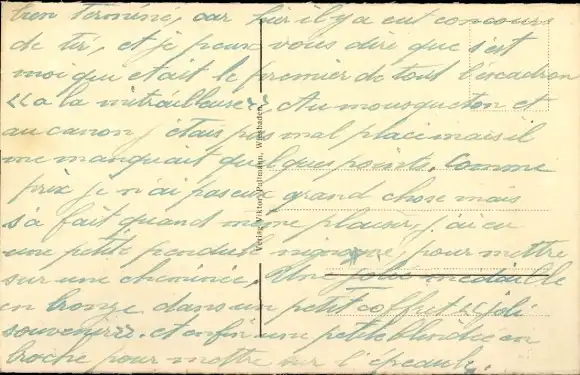 bien terminé, car hier il y a eut concours
de tir, et je peux vous dire que s'est
moi qui était le premier de tout l'escadron
<< a la mitrailleuse >>, Au mousqueton et
au canon j'étais pas mal placé mais il
me manquait quelques points. Comme
prix je n'ai pas eux grand chose mais
s'a fait quand même plaisir, j'ai eu
une petite pendule pour mettre
sur une cheminée, Une médaille
en bronze dans un petit coffret << joli
souvenir >>. et enfin une petite en
broche pour mettre sur l'épaule.
Verlag Viktor Pallmann, Wiesbaden